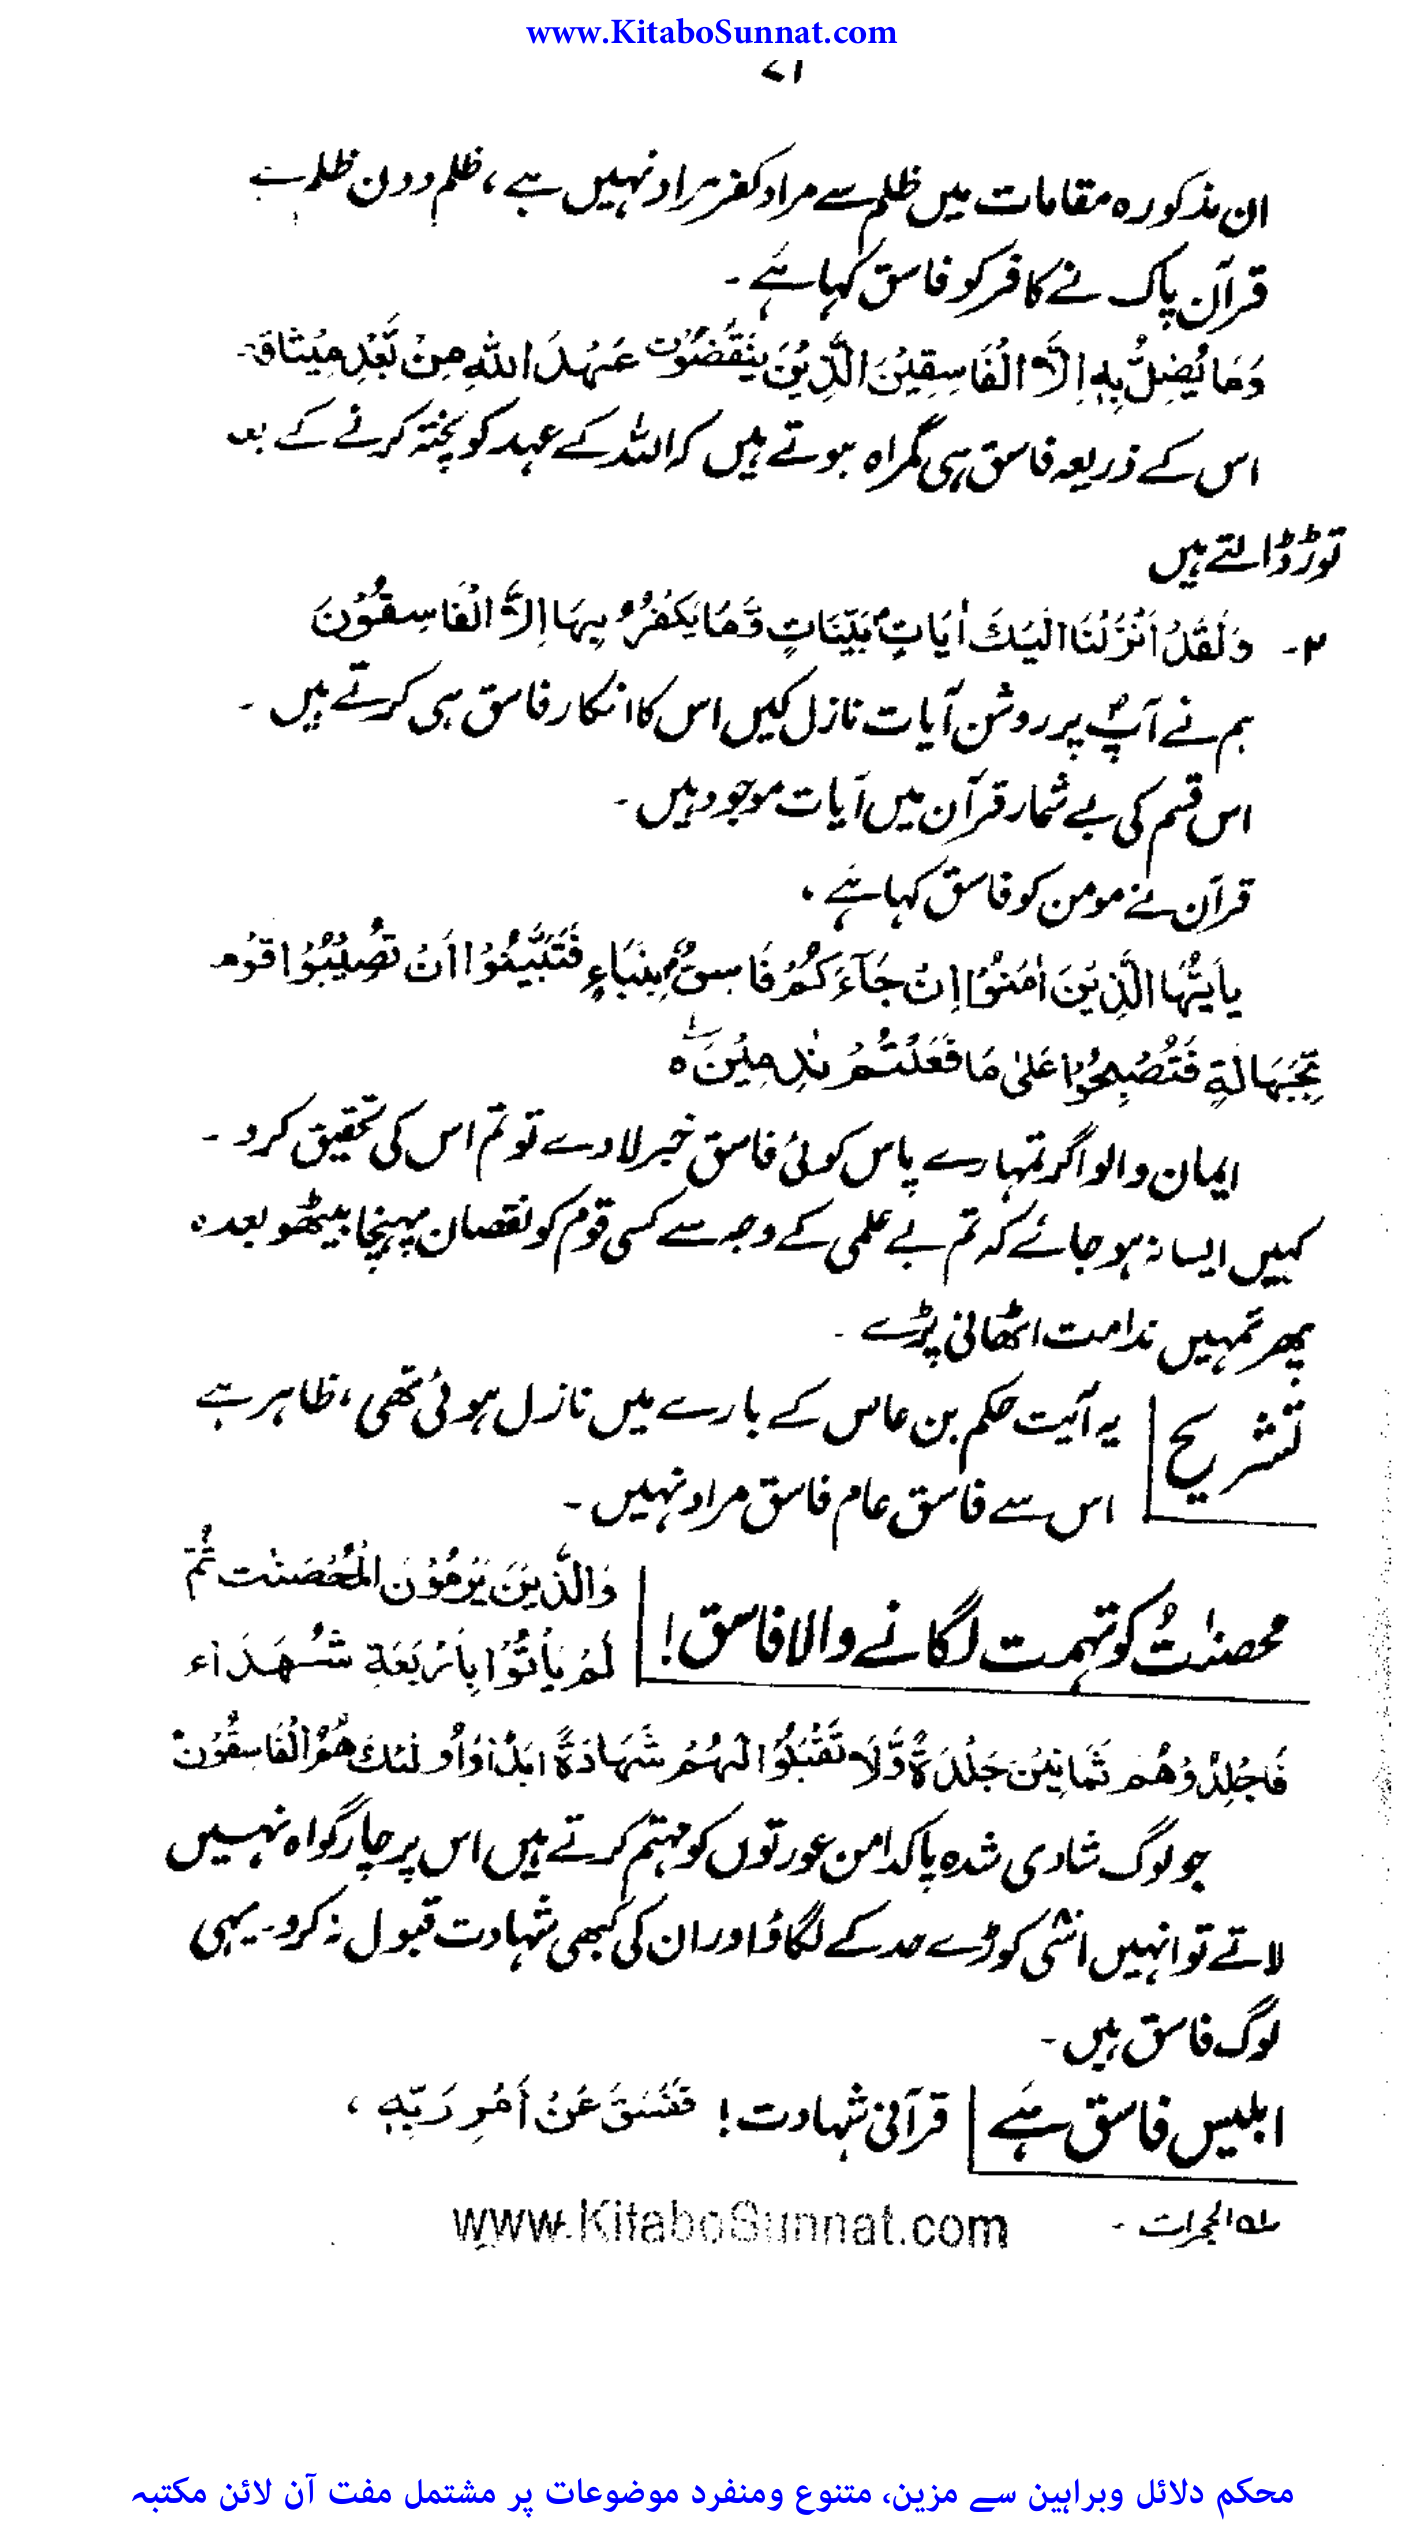 www.KitaboSunnat.com
۷۱
ان مذکورہ مقامات میں ظلم سے مراد کفر مراد نہیں ہے ، ظلم دون ظلم ہے
قرآن پاک نے کافر کو فاسق کہا ہے ۔
وَمَا یُضِلُّ بِہٖ اِلَّا الْفَاسِقِیْنَ الَّذِیْنَ یَنْقُضُوْنَ عَہْدَ اللہِ مِنْ بَّعْدِ مِیْثَاقِہ
اس کے ذریعہ فاسق ہی گمراہ ہوتے ہیں کہ اللہ کے عہد کو پختہ کرنے کے بعد
توڑ ڈالتے ہیں
۲ـ وَلَقَدْ اَنْزَلْنَا اِلَیْكَ اٰیَاتٍ بَیِّنَاتٍ وَّمَا یَکْفُرُ بِہَا اِلَّا الْفَاسِقُوْنَ
ہم نے آپؐ پر روشن آیات نازل کیں اس کا انکار فاسق ہی کرتے ہیں ۔
اس قسم کی بے شمار قرآن میں آیات موجود ہیں ۔
قرآن نے مومن کو فاسق کہا ہے ،
یٰاَیُّہَا الَّذِیْنَ اٰمَنُوْا اِنْ جَآءَکُمْ فَاسِقٌ بِنَبَاءٍ فَتَبَیَّنُوْا اَنْ تُصِیْبُوْا قَوْم
بِجَہَالَۃٍ فَتُصْبِحُوْا عَلٰی مَا فَعَلْتُمْ نٰدِمِیْنَ ؎۱ ہ
ایمان والو اگر تمہارے پاس کوئی فاسق خبر لا دے تو تم اس کی تحقیق کرو ۔
کہیں ایسا نہ ہو جائے کہ تم بے علمی کے وجہ سے کسی قوم کو نقصان پہنچا بیٹھو بعدہ
پھر تمہیں ندامت اٹھانی پڑے ۔
تشریح یہ آیت حکم بن عاص کے بارے میں نازل ہوئی تھی ، ظاہر ہے
اس سے فاسق عام فاسق مراد نہیں ۔
محصنٰتُ کو تہمت لگانے والا فاسق ! وَالَّذِیْنَ یَرْمُوْنَ الْمُحْصَنٰت ثُمَّ
لَمْ یَأْتُوْا بِاَرْبَعَۃِ شُہَدَاء
فَاجْلِدُوْہُم ثَمَانِیْنَ جَلْدَۃً وَّلَا تَقْبَلُوْا لَہُمْ شَہَادَۃً اَبَدًا وَاُولٰئِكَ ہُمُ الْفَاسِقُوْنَ
جو لوگ شادی شدہ پاکدامن عورتوں کو مہتم کرتے ہیں اس پر چار گواہ نہیں
لاتے تو انہیں اسّی کوڑے حد کے لگاؤ اور ان کی کبھی شہادت قبول نہ کرو ۔ یہی
لوگ فاسق ہیں ۔
ابلیس فاسق ہے قرآنی شہادت ! فَفَسَقَ عَنْ أَمْرِ رَبِّہٖ ،
؎۱ الحجرات ۔
www.KitaboSunnat.com
محکم دلائل وبراہین سے مزین، متنوع ومنفرد موضوعات پر مشتمل مفت آن لائن مکتبہ